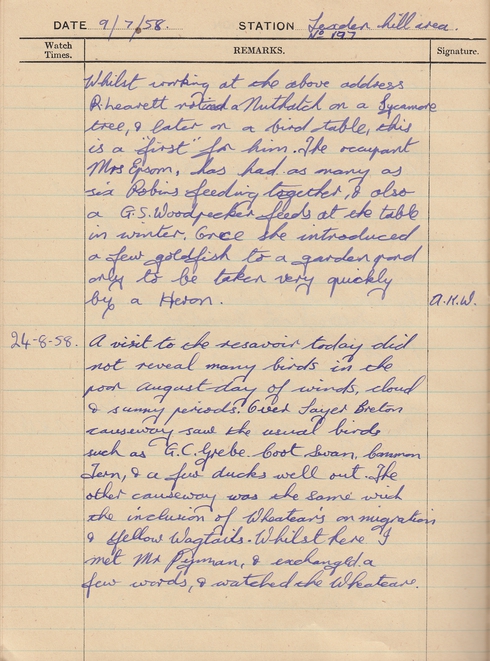 DATE 9/7/58. STATION Lexden hill area.
No 197
Watch Times. REMARKS. Signature.
Whilst working at the above address
R. Leavett noticed a Nuthatch on a Sycamore
tree, & later on a bird table, this
is a "first" for him. The occupant
Mrs Epsom, has had as many as
six Robins feeding together, & also
a G.S. Woodpecker feeds at the table
in winter. Once she introduced
a few goldfish to a garden pond
only to be taken very quickly
by a Heron. A.H.W.
24-8-58. A visit to the resavoir today did
not reveal many birds in the
poor August day of winds, cloud
& sunny periods. Over Layer Breton
causeway saw the usual birds
such as G.C. Grebe. Coot Swan, Common
Tern, & a few ducks well out. The
other causeway was the same with
the inclusion of Wheatears on migration
& Yellow Wagtails. Whilst here I
met Mr Pyman, & exchanged a
few words, & watched the Wheatears.